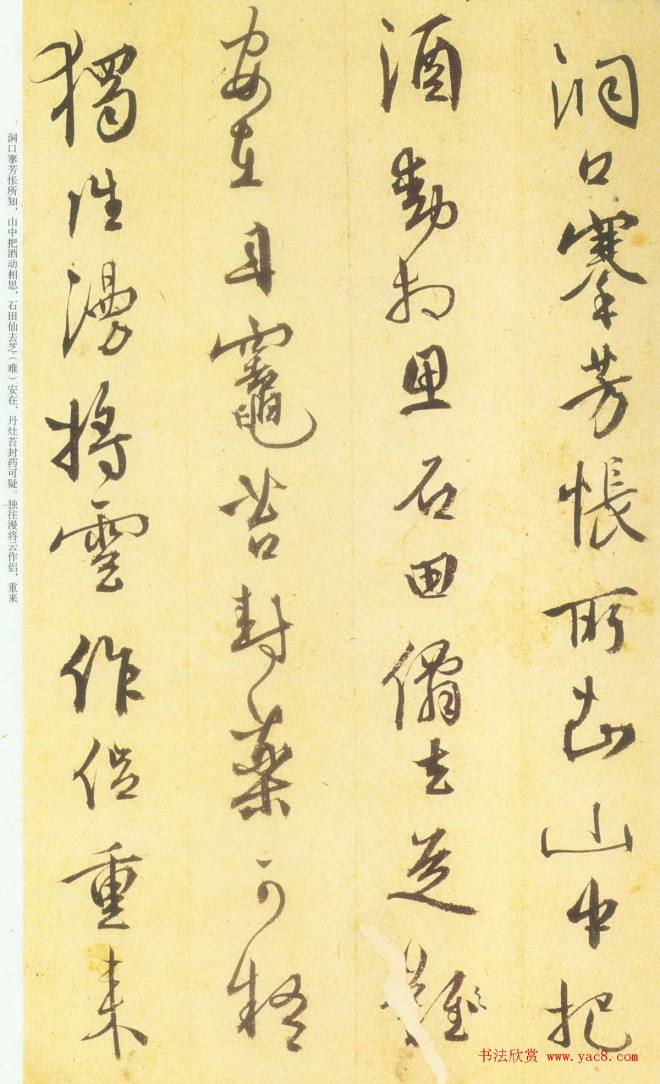 洞口搴芳悵所知山中把
酒動相思石田僊去芝難
安在丹竈苔封藥可疑
獨往漫將雲作侣重來
洞口搴芳怅所知，山中把酒动相思，石田仙去芝（难）安在，丹灶苔封药可疑。独往漫将云作侣，重来
书法欣赏 www.yac8.com